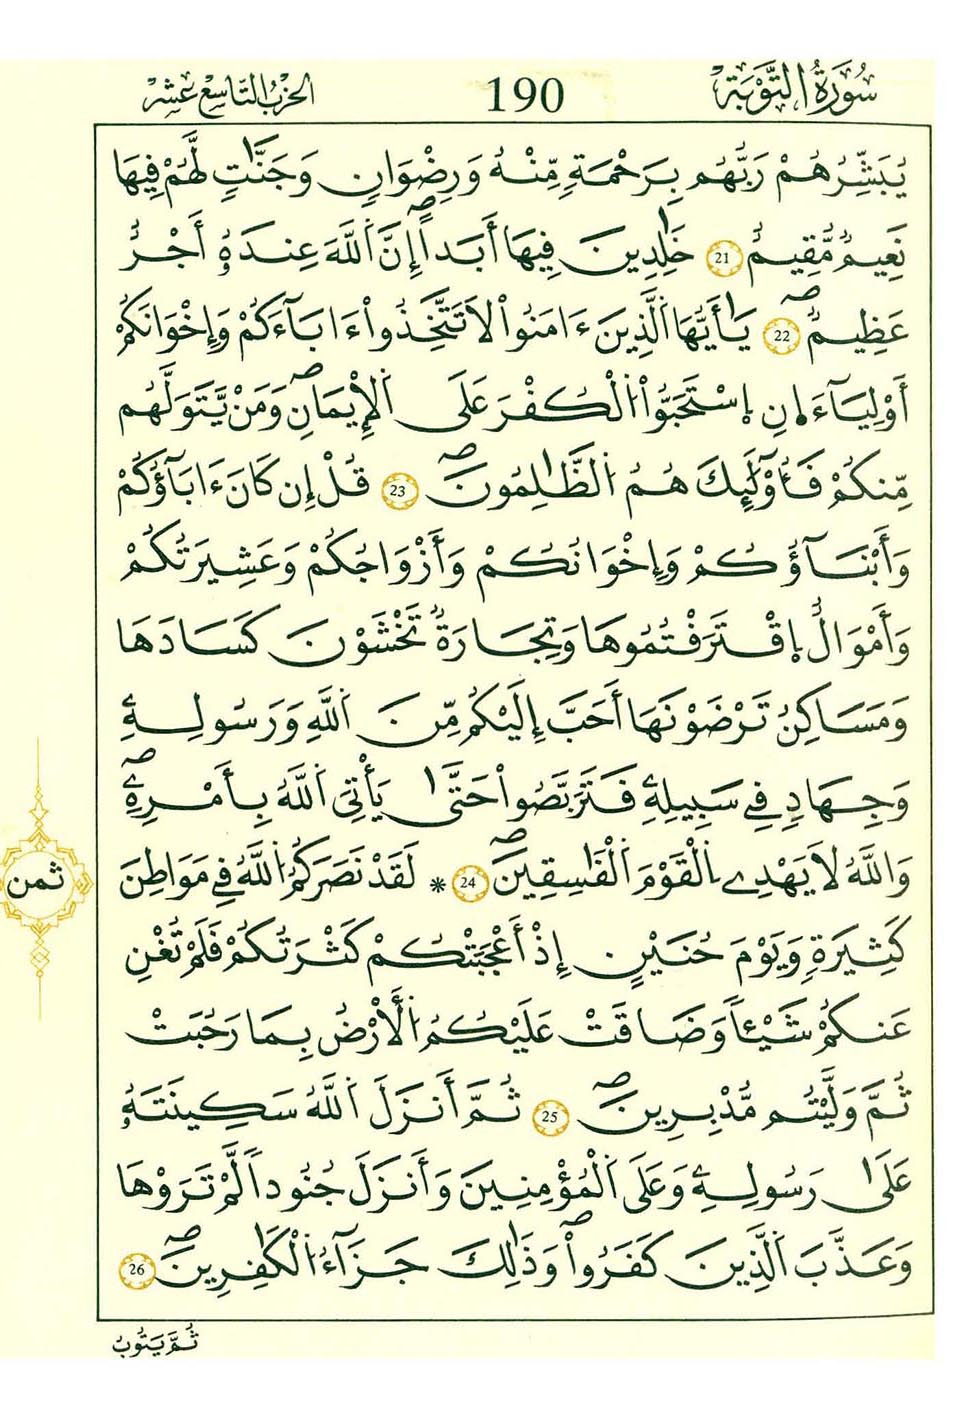 سُورَةُ التَّوْبَةِ 190 الحِزْبُ التَّاسِعَ عَشَرَ
يُبَشِّرُهُمْ رَبُّهُم بِرَحْمَةٍ مِّنْهُ وَرِضْوَانٍ وَجَنَّٰتٍ لَّهُمْ فِيهَا
نَعِيمٌ مُّقِيمٌ 21 خَٰلِدِينَ فِيهَا أَبَداً إِنَّ اَللَّهَ عِندَهُۥ أَجْرٌ
عَظِيمٌ 22 يَٰأَيُّهَا اَلَّذِينَ ءَامَنُواْ لَا تَتَّخِذُواْ ءَابَآءَكُمْ وَإِخْوَانَكُمْ
أَوْلِيَآءَ اِ۪نِ اِ۪سْتَحَبُّواْ اُلْكُفْرَ عَلَى اَلْإِيمَانِ وَمَنْ يَّتَوَلَّهُم
مِّنكُمْ فَأُوْلَٰٓئِكَ هُمُ اُلظَّٰلِمُونَ 23 قُلْ إِن كَانَ ءَابَآؤُكُمْ
وَأَبْنَآؤُكُمْ وَإِخْوَانُكُمْ وَأَزْوَاجُكُمْ وَعَشِيرَتُكُمْ
وَأَمْوَالٌ اِ۪قْتَرَفْتُمُوهَا وَتِجَارَةٌ تَخْشَوْنَ كَسَادَهَا
وَمَسَاكِنُ تَرْضَوْنَهَا أَحَبَّ إِلَيْكُم مِّنَ اَللَّهِ وَرَسُولِهِۦ
وَجِهَادٍ فِي سَبِيلِهِۦ فَتَرَبَّصُواْ حَتَّىٰ يَأْتِيَ اَللَّهُ بِأَمْرِهِۦ
وَاللَّهُ لَا يَهْدِي اِلْقَوْمَ اَلْفَٰسِقِينَ 24 * لَقَدْ نَصَرَكُمُ اُللَّهُ فِي مَوَاطِنَ
ثمن
كَثِيرَةٍ وَيَوْمَ حُنَيْنٍ إِذْ أَعْجَبَتْكُمْ كَثْرَتُكُمْ فَلَمْ تُغْنِ
عَنكُمْ شَيْـٔاً وَضَاقَتْ عَلَيْكُمُ اُلْأَرْضُ بِمَا رَحُبَتْ
ثُمَّ وَلَّيْتُم مُّدْبِرِينَ 25 ثُمَّ أَنزَلَ اَللَّهُ سَكِينَتَهُۥ
عَلَىٰ رَسُولِهِۦ وَعَلَى اَلْمُؤْمِنِينَ وَأَنزَلَ جُنُوداً لَّمْ تَرَوْهَا
وَعَذَّبَ اَلَّذِينَ كَفَرُواْ وَذَٰلِكَ جَزَآءُ اُلْكَٰفِرِينَ 26
ثُمَّ يَتُوبُ